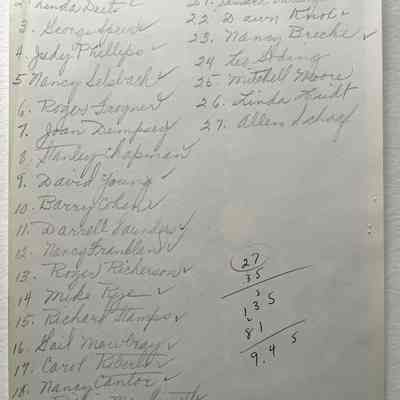 2. Linda Deets ✓
3. George Spear ✓
4. Judy Phillips ✓
5. Nancy Selsbach ✓
6. Roger Grogner ✓
7. Joan Dempsey ✓
8. Stanley Chapman ✓
9. David Young ✓
10. Barry Cohen ✓
11. Darrell Saunders ✓
12. Nancy Franklan ✓
13. Roger Richerson ✓
14 Mike Rye ✓
15. Richard Stamps ✓
16. Gail Mowbray ✓
17. Carol Roberts ✓
18. Nancy Cantor ✓
21.
22 Dawn Knol ✓
23. Nancy Breche ✓
24 Les
25. Mitchell Moore
26. Linda
27. Allen Schaef
27
35
135
81
9.45